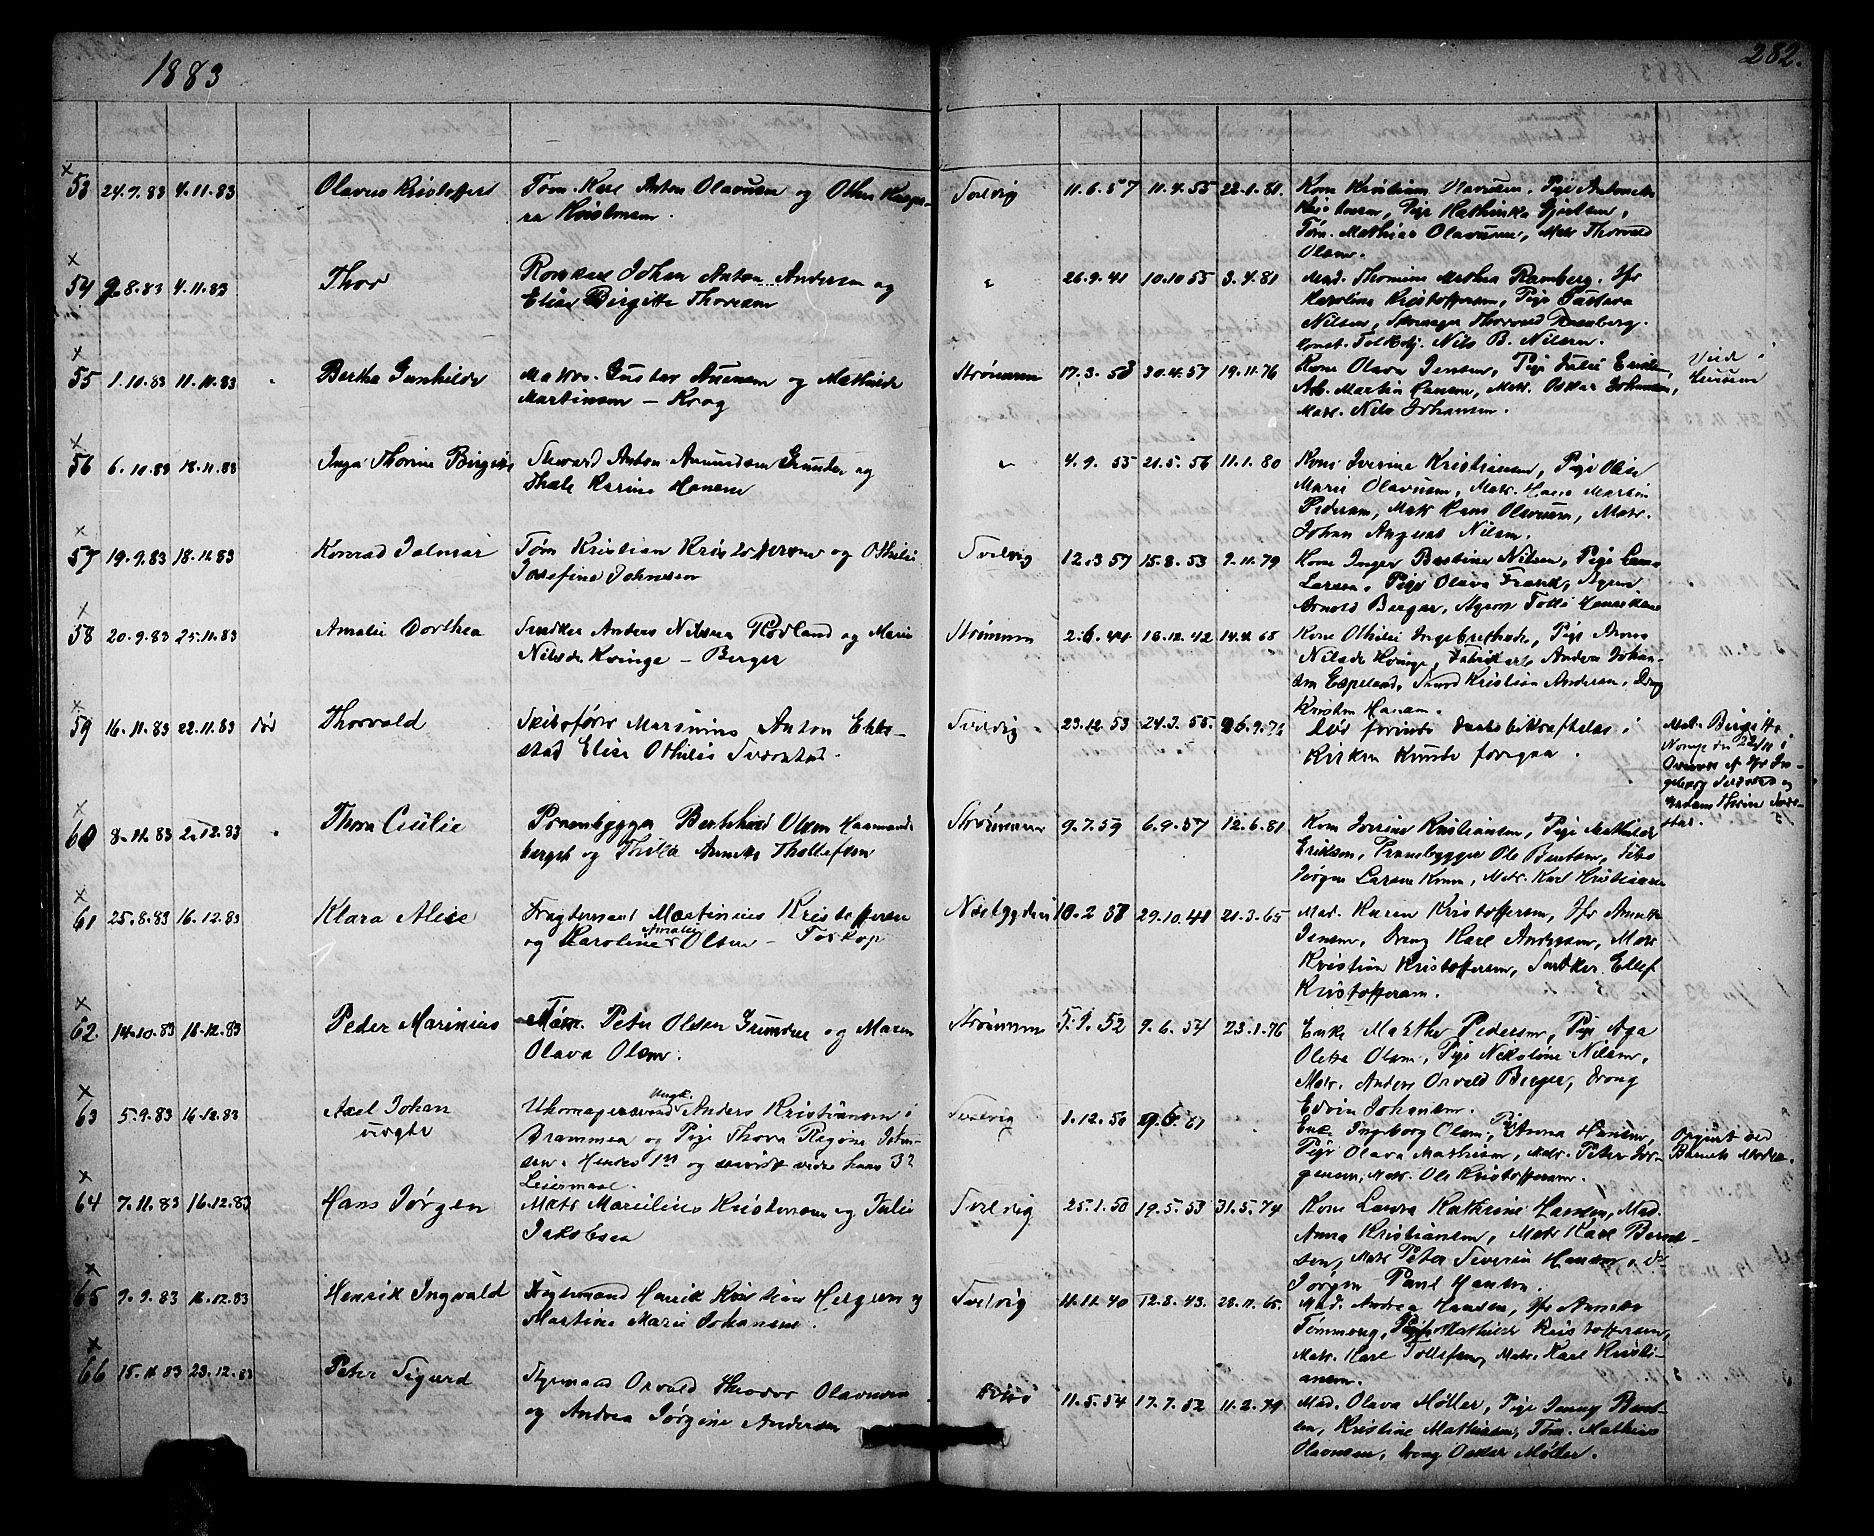 1883
282.
53 24.7.83 4.11.83 Olavus Kristoffer Tøm. Karl Anton Olavusen og
Kristensen. Svelvig 11.6.57 11.4.55 22.1.81 Kone Kristiane Olavusen, Pige
Kristensen, Pige Kathinka Gjertsen,
Tøm. Mathias Olavusen, Matr. Thorvald
Olsen.
54 2.8.83 4.11.83 Thor Johan Anton Andersen og
Elise Birgitte Thoresen " 26.9.41 10.10.55 3.4.81 Mad. Thomine Mathea Ramberg, Jfr
Karoline Kristoffersen, Pige Gustava
Nilsen, Thorvald Ramberg.
Const. Toldbetj. Nils B. Nilsen.
55 1.10.83 11.11.83 Bertha Gunhilde Matros. Gustav Amundsen og Mathilde
Martinsen – Krog Strømmen 17.3.58 30.4.57 19.11.76 Kone Olava Jensen, Pige Julie
Arb. Martin Hansen, Matr. Oskar Johansen,
Matr. Nils Johansen.
Viede i
Hurum
56 6.10.83 18.11.83 Inga Thorine Birgitte Steward Anton Amundsen Grunder og
Thale Karine Hansen " 4.9.55 21.5.56 11.1.80 Kone Iverine Kristiansen, Pige Oline
Marie Olavusen, Matr. Hans Martin
Pedersen, Matr. Hans Olavusen, Matr.
Johan August Nilsen.
57 19.9.83 18.11.83 Konrad Jalmar Tøm Kristian Kristoffersen og Othilie
Josefine Johnsen Svelvig 12.3.57 15.8.53 9.11.79 Kone Inger Bastine Nilsen, Pige
Larsen, Pige Olava Frank, Agent
Arnold Berger, Agent Tolli
58 20.9.83 25.11.83 Amalie Dorthea Snedker Anders Nilsen Rødland og Marie
Nilsdr. Kvinge – Berger Strømmen 2.6.44 18.12.42 14.4.65 Kone Othilie Ingebrethsen, Pige Anna
Nilsdr. Kvinge, Fabrikarb Anders Johan-
sen Espeland, Smed Kristian Andersen, Dreng
Kristen Hansen.
59 16.11.83 22.11.83 død Thorvald Skibsfører Marinius Anton Ebbe-
stad Elise Othilie Sverstad. Svelvig 23.12.53 24.3.55 26.9.76 Død forinden Daabsbekræftelse i
Kirken kunde foregaa.
Birgitte
Norge den 22/11 i
Overvær af Jfr In-
geborg Sverstad og
Madam Thrine Sver-
stad.
60 8.11.83 2.12.83 Thora Cecilie Prambygger Bertehard Olsen
bergst og Thrika Annette Thollefsen Strømmen 9.7.59 6.9.57 12.6.81 Kone Kristiansen, Pige Mathilde
Eriksen, Prambygger Ole Berntsen,
Jørgen Larsen Krem, Matr. Karl Kristiansen
61 25.8.83 16.12.83 Klara Alise Fragtemand Martinius Kristoffersen
og Karoline Amalie Olsen – Toskop Nesbygden 10.2.38 29.10.41 21.3.65 Mad. Karen Kristoffersen, Jfr Annette
Jensen, Dreng Karl Andersen, Matr
Kristian Kristoffersen, Snedker Ellef
Kristoffersen.
62 14.10.83 16.12.83 Peder Marinius Tøm. Peter Olsen Grunder og Maren
Olava Olsen. Strømmen 5.9.52 9.6.54 23.1.76 Enke Marthe Pedersen, Pige Aga
Oletta Olsen, Pige Nikoline Nilsen,
Matr. Anders Orvald Berger, Dreng
Edvin Johansen.
63 5.9.83 16.12.83 Axel Johan
uægte Uhrmagersvend Ungk. Anders Kristiansen i
Drammen og Pige Thora Regine John-
sen. Hendes 1st og vides hans 3die
Leiermaal. Svelvig 1.12.50 9.6.61 Enk. Ingeborg Olsen, Pige Anna Hansen,
Pige Olava Mathisen, Matr. Peter Jør-
gensen, Matr. Ole Kristoffersen.
Opgivet ved
Barnets Moder.
64 7.11.83 16.12.83 Hans Jørgen Matr Marcilius Kristensen og Julie
Jakobsen Svelvig 25.1.50 19.5.53 31.5.74 Kone Laura Kathrine Hansen, Mad.
Anna Kristiansen, Matr Karl Bernt-
sen, Matr Peter Severin Hansen, do
Jørgen Paul Hansen.
65 9.9.83 16.12.83 Henrik Ingvald Styrmand Henrik Kristian Helgesen og
Martine Marie Johansen. Svelvig 11.11.40 12.8.43 28.11.65 Mad. Andrea Hansen, Jfr Annette
Tømmerug, Pige Mathilde Kristoffersen,
Matr. Karl Tollefsen, Matr. Karl Kristi-
ansen.
66 15.11.83 23.12.83 Peter Sigurd Styrmand Orvald Theodor Olavusen
og Andrea Jørgine Andersen 11.5.54 17.7.52 11.2.79 Mad. Olava Møller, Pige Jenny Bernt-
sen, Kristine Mathisen, Tøm. Mathias
Olavusen, Dreng Oskar Møller.